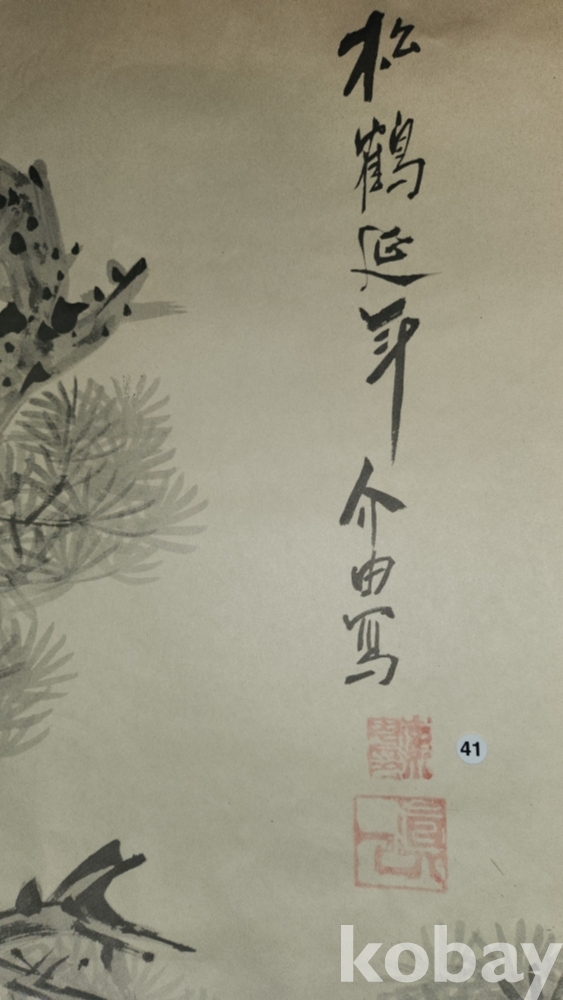 松鶴延年 介由写
41
kobay